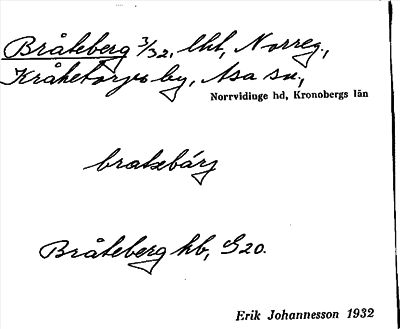 Bråteberg 3/32, lht, Norreg.,
Kråketorps by, Asa sn,
Norrvidinge hd, Kronobergs län
bratəbárj
Bråteberg hb, G20.
Erik Johannesson 1932